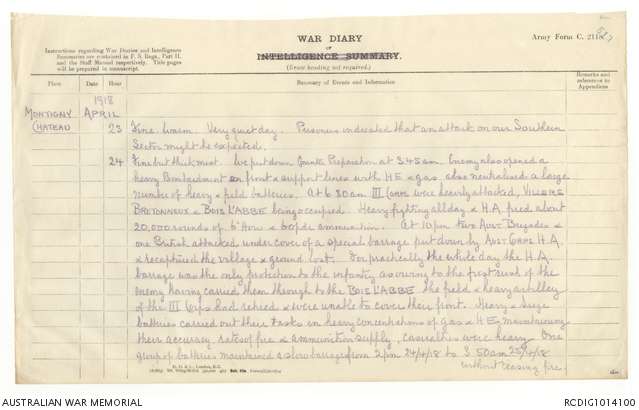 WAR DIARY
or
INTELLIGENCE SUMMARY.
(Erase heading not required.)
Army Form C. 2118.
Instructions regarding War Diaries and Intelligence
Summaries are contained in F. S. Regs., Part II.
and the Staff Manual respectively. Title pages
will be prepared in manuscript.
Place Date Hour Summary of Events and Information Remarks and references to Appendices
MONTIGNY CHATEAU
1918
APRIL
23 Fine. Warm. Very quiet day. Prisoners indicated that an attack on our Southern
Sector might be expected.
24 Fine but thick mist. We put down Counter Preparation at 3.45 am. Enemy also opened a
heavy Bombardment on front & support lines with HE & gas also neutralised a large
number of heavy & field batteries. At 6.30 am III Corps were heavily attacked, VILLERS
BRETONNEUX & BOIS L'ABBE being occupied. Heavy fighting all day & H.A. fired about
20,000 rounds of 6" How & 60 pdr ammunition. At 10 pm two Aust Brigades &
one British attacked under cover of a special barrage put down by AUST CORPS H.A.
& recaptured the village & ground lost. For practically the whole day the H.A.
barrage was the only protection to the infantry as owing to the first rush of the
enemy having carried them through to the BOIS L'ABBE the field & heavy artillery
of the III Corps had retired & were unable to cover their front. Heavy & Siege
batteries carried out their tasks in heavy concentrations of gas & HE, maintaining
their accuracy, rates of fire & ammunition supply, casualties were heavy. One
group of batteries maintained a slow barrage from 2 pm 24/4/18 to 3.50 am 25/4/18
without ceasing fire.
D. D. & L., London, E.C.
AUSTRALIAN WAR MEMORIAL
RCDIG1014100